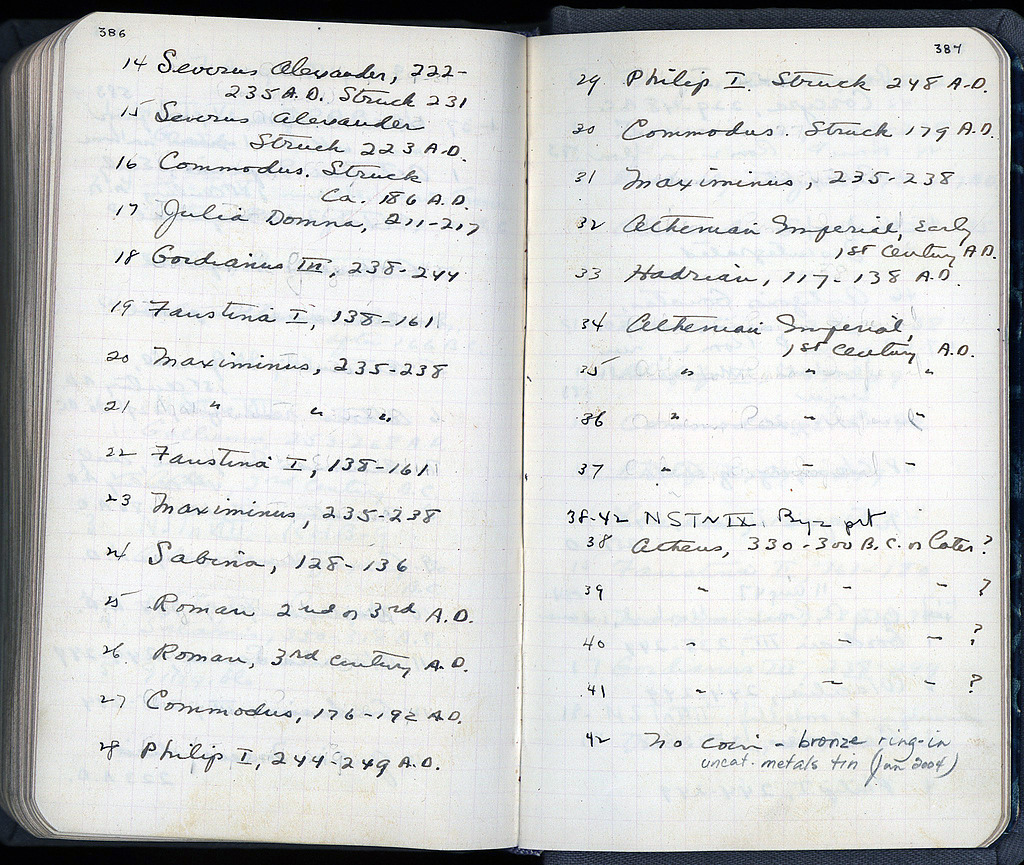 386
14 Severus Alexander, 222-
235 A.D. Struck 231
15 Severus Alexander
Struck 223 A.D.
16 Commodus. Struck
Ca. 186 A.D.
17 Julia Domna, 211-217
18 Gordianus III, 238-244
19 Faustina I, 138-161
20 Maximinus, 235-238
21 " " "
22 Faustina I, 138-161
23 Maximinus, 235-238
24 Sabina, 128-136
25 Roman 2nd or 3rd A.D.
26 Roman, 3rd century A.D.
27 Commodus, 176-192 A.D.
28 Philip I, 244-249 A.D.
387
29 Philip I. Struck 248 A.D.
30 Commodus Struck 179 A.D.
31 Maximinus, 235-238
32 Athenian Imperial, Early
1st Century A.D.
33 Hadrian, 117-138 A.D.
34 Athenian Imperial,
1st Century A.D.
35 " " "
36 " " "
37 " " "
38-42 NSTNIX. Byz prt
38 Athens, 330-300 B.C. or Later?
39 " " " ?
40 " " " ?
41 " " " ?
42 No coin - bronze ring-in
uncat. metals tin (Jan 2004)